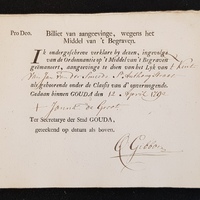 Pro Deo. Billiet van aangeevinge, wegens het
Middel van 't Begraven.
Ik ondergeschreve verklare by dezen, ingevolge
van de Ordonnantie op 't Middel van 't Begraven
geëmaneert, aangeevinge te doen van het Lyk van 't Kind
Van Jan van der
als gehoorende onder de Classis van d' onvermogende.
Gedaan binnen GOUDA, den 12 April 179
Ter Secretarye der Stad GOUDA,
geteekend op datum als boven,